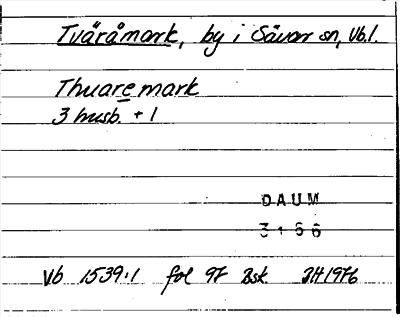 Tväråmark, by i Sävar sn, Vb.l.
Thuaremark
3 husb. + 1
DAUM
3166
Vb 1539:1 fol 97 Bsk. JH1976